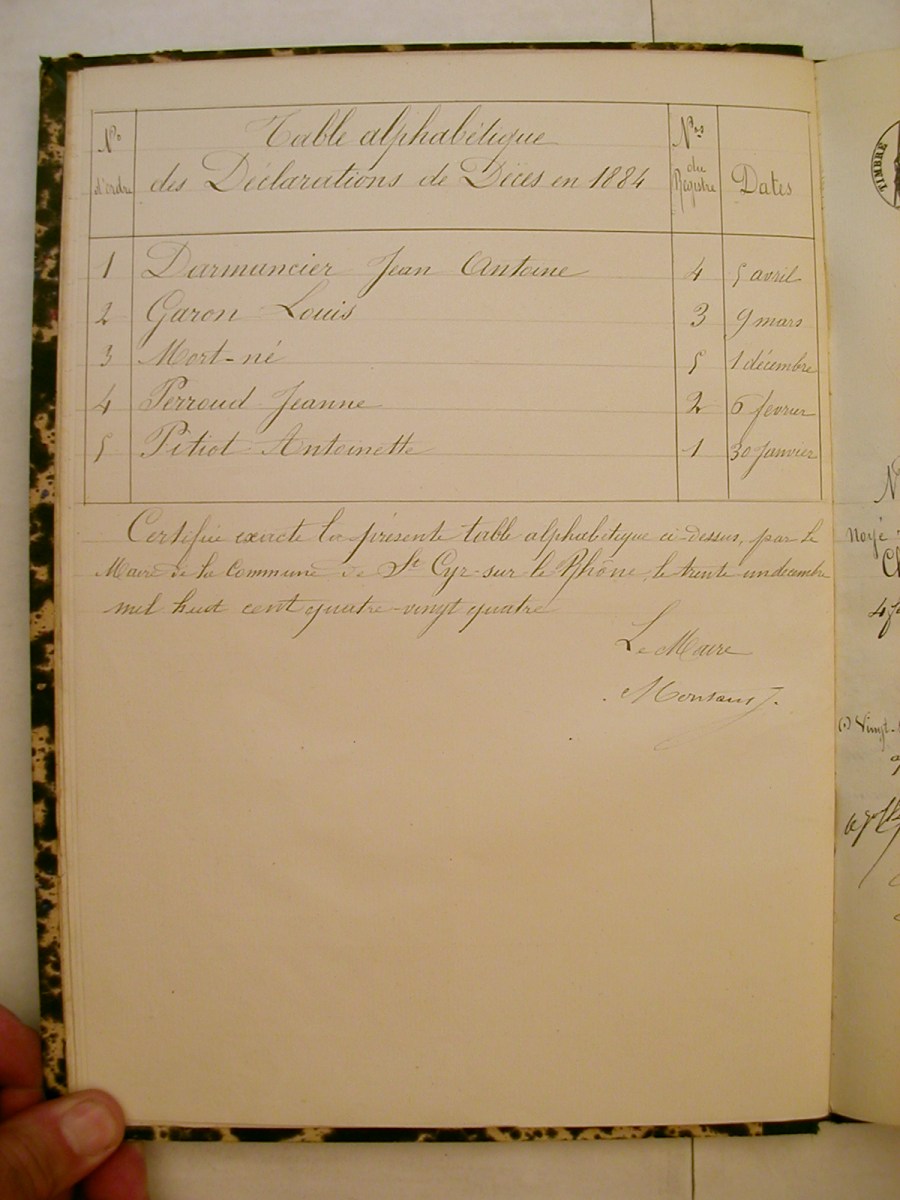 Nº d'ordre
Table alphabétique
des Déclarations de Décès en 1884
Nos du Registre
Dates
1 Darmancier Jean Antoine 4 5 avril
2 Garon Louis 3 9 mars
3 Mort-né 5 1 décembre
4 Perroud Jeanne 2 6 fevrier
5 Pitiot Antoinette 1 30 Janvier
Certifiée exacte la présente table alphabétique ci-dessus, par le
Maire de la Commune de St Cyr-sur le Rhône, le trente un decembre
mil huit cent quatre-vingt quatre
Le Maire
TIMBRE